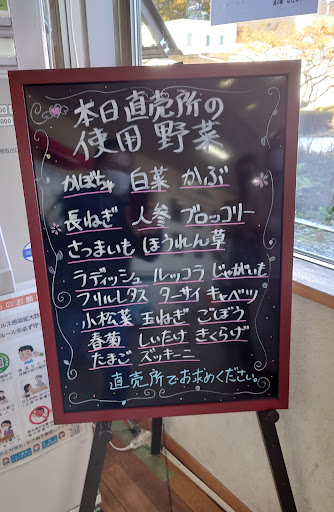 本日直売所の
使用野菜
かぼちゃ 白菜 かぶ
長ねぎ 人参 ブロッコリー
さつまいも ほうれん草
ラディッシュ ルッコラ じゃがいも
フリルレタス ターサイ キャベツ
小松菜 玉ねぎ ごぼう
春菊 しいたけ きくらげ
たまご ズッキーニ
直売所でお求めください。